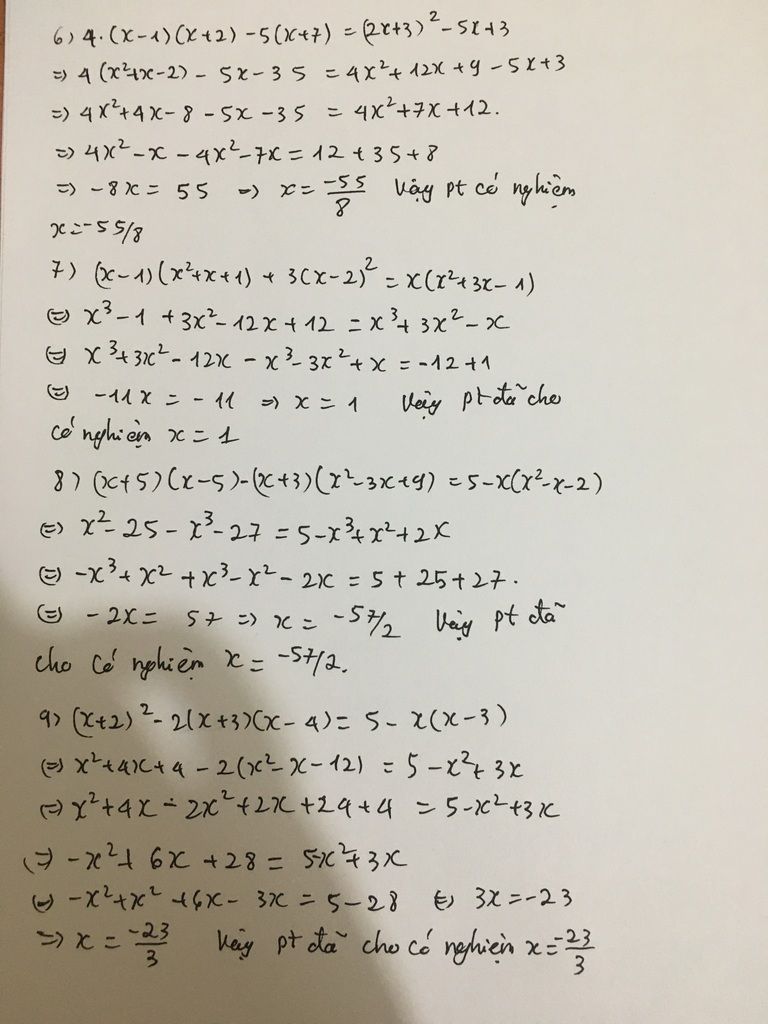 6) 4.(x-1)(x+2) -5(x+7) = (2x+3)² -5x+3
=> 4(x²+x-2) - 5x-35 = 4x²+12x+9-5x+3
=> 4x²+4x-8-5x-35 = 4x²+7x+12.
=> 4x²-x-4x²-7x = 12+35+8
=> -8x = 55 => x = -55/8 Vậy pt có nghiệm
x = -55/8
7) (x-1)(x²+x+1) + 3(x-2)² = x(x²+3x-1)
<=> x³-1+3x²-12x+12 = x³+3x²-x
<=> x³+3x²-12x-x³-3x²+x = -12+1
<=> -11x = -11 => x = 1 Vậy pt đã cho
có nghiệm x = 1
8) (x+5)(x-5)-(x+3)(x²-3x+9) = 5-x(x²-x-2)
<=> x²-25-x³-27 = 5-x³+x²+2x
<=> -x³+x²+x³-x²-2x = 5+25+27.
<=> -2x = 57 => x = -57/2 Vậy pt đã
cho có nghiệm x = -57/2.
9) (x+2)²-2(x+3)(x-4) = 5-x(x-3)
<=> x²+4x+4-2(x²-x-12) = 5-x²+3x
<=> x²+4x-2x²+2x+24+4 = 5-x²+3x
<=> -x²+6x+28 = 5-x²+3x
<=> -x²+x²+6x-3x = 5-28 <=> 3x = -23
=> x = -23/3 Vậy pt đã cho có nghiệm x = -23/3